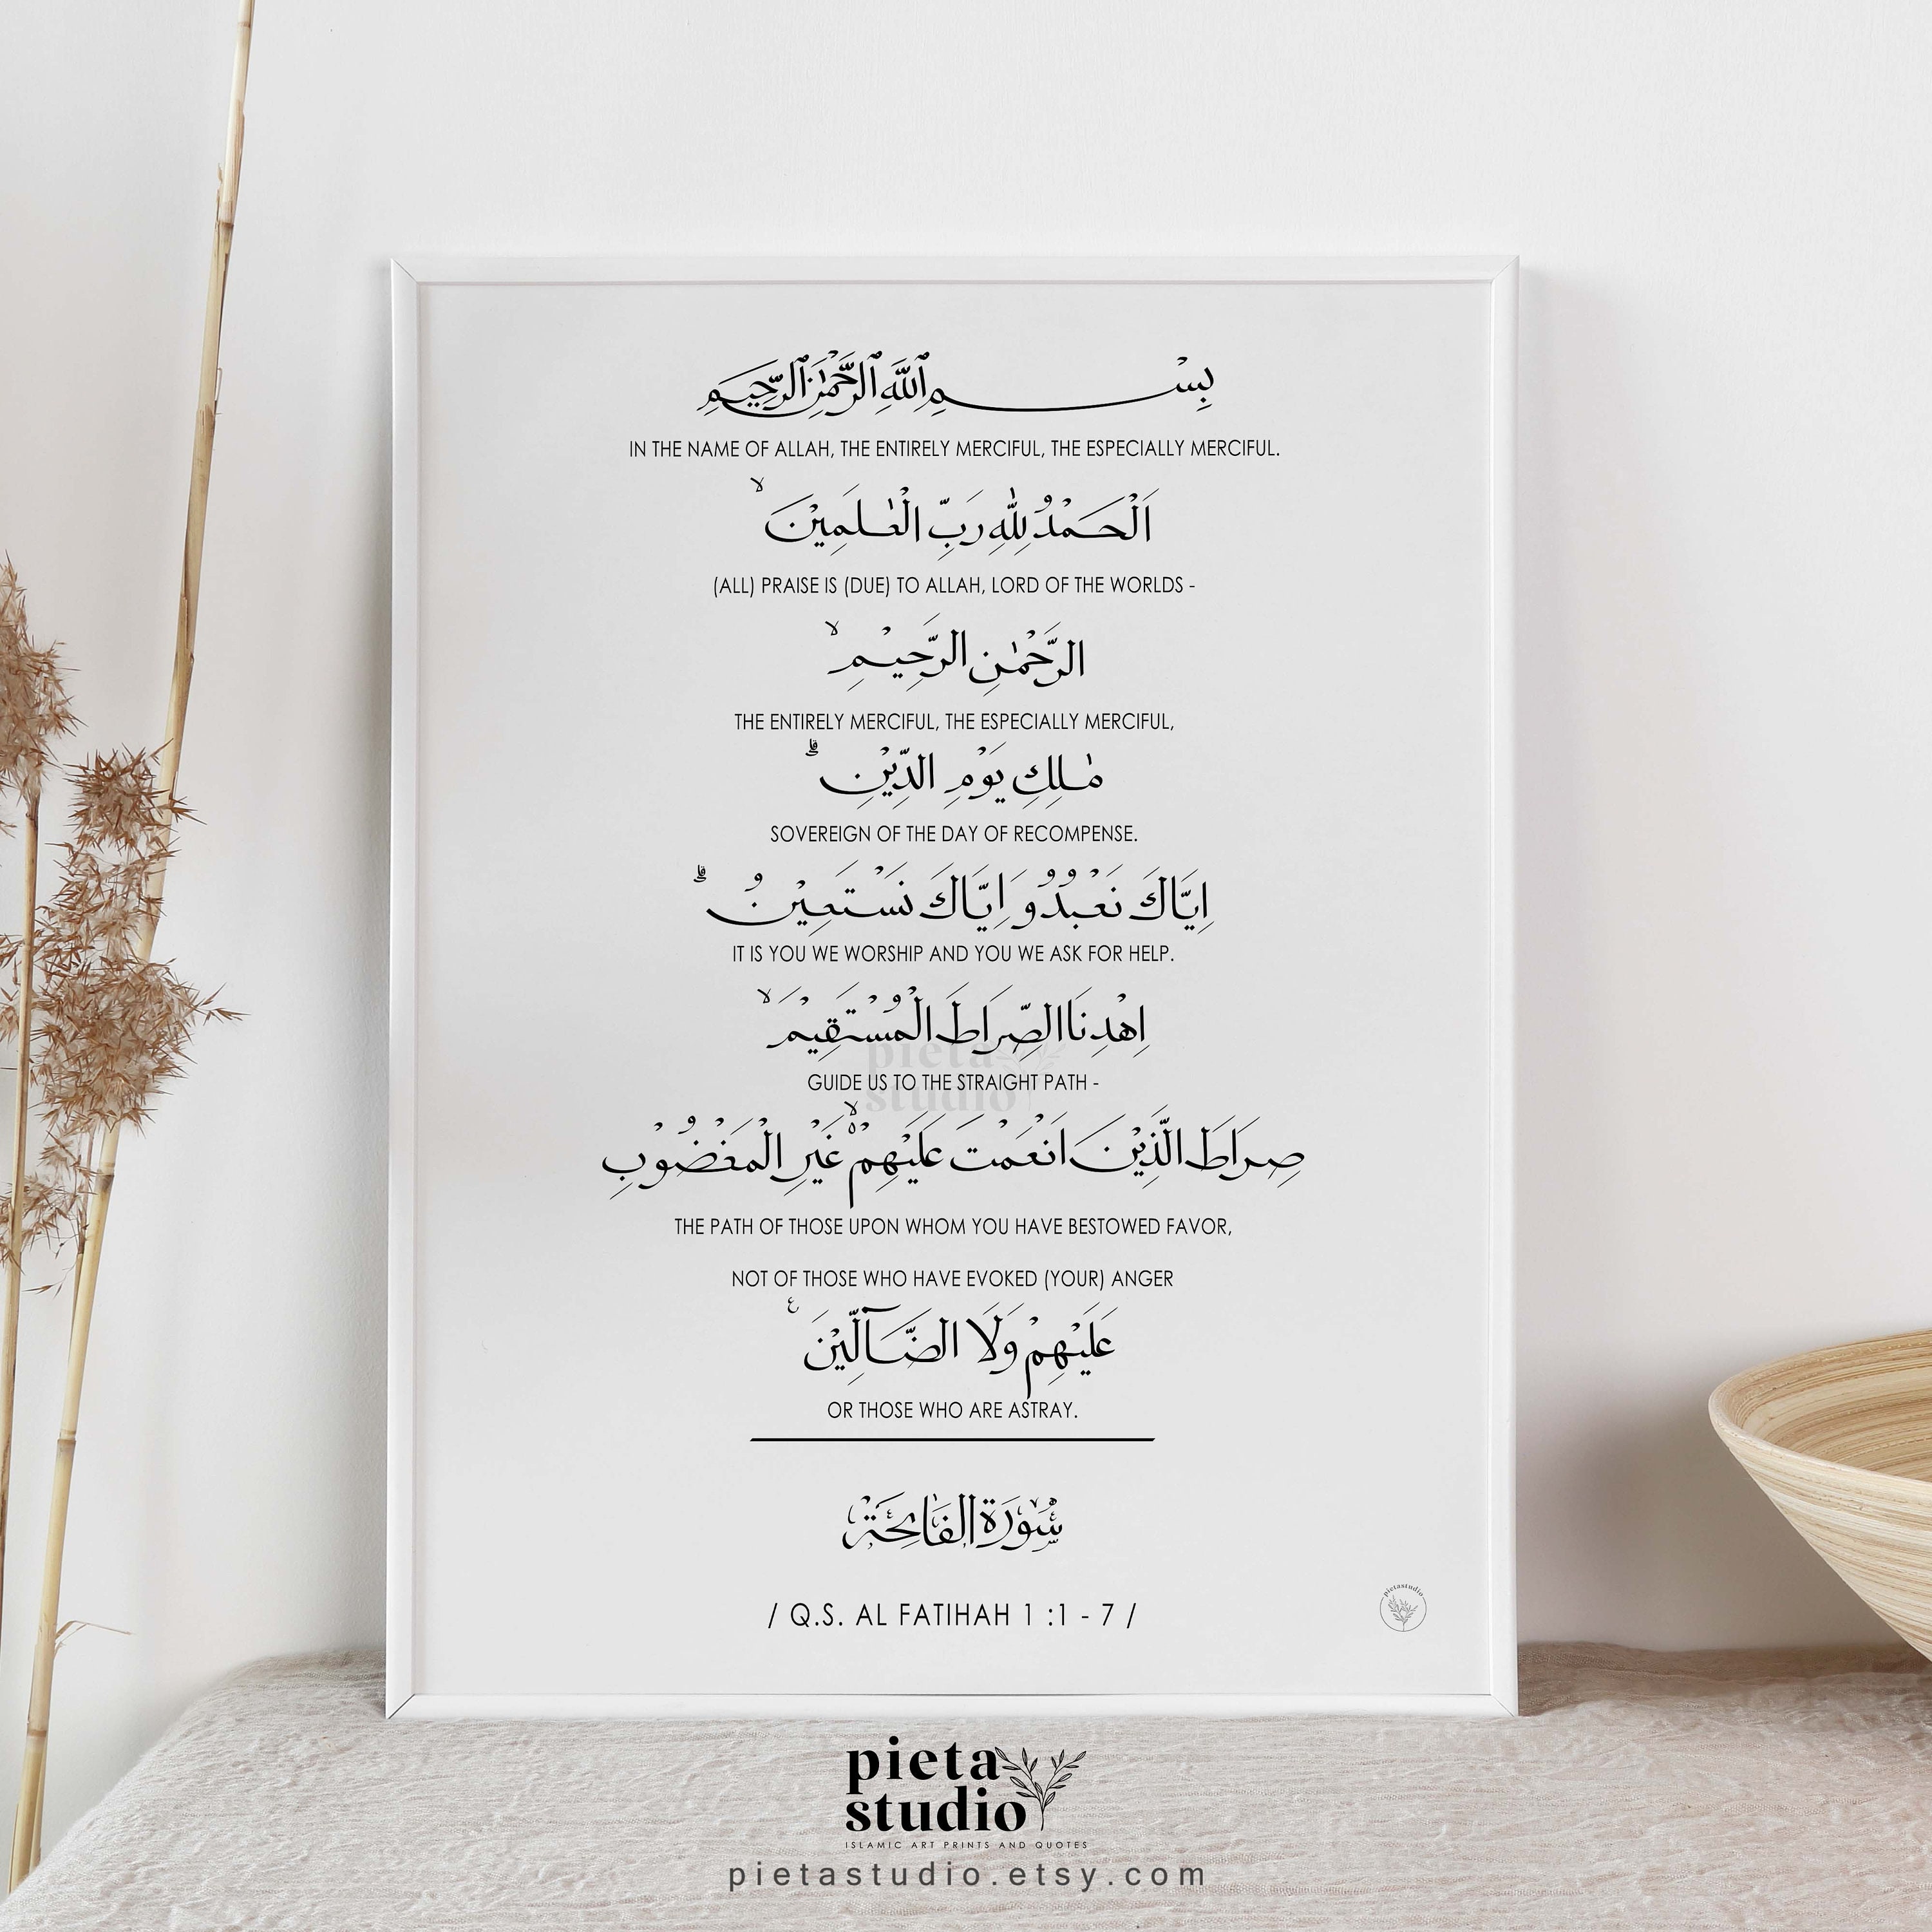 بِسْمِ اللّٰهِ الرَّحْمٰنِ الرَّحِيْمِ
IN THE NAME OF ALLAH, THE ENTIRELY MERCIFUL, THE ESPECIALLY MERCIFUL.
اَلْحَمْدُ لِلّٰهِ رَبِّ الْعٰلَمِيْنَ ۙ
(ALL) PRAISE IS (DUE) TO ALLAH, LORD OF THE WORLDS -
الرَّحْمٰنِ الرَّحِيْمِ ۙ
THE ENTIRELY MERCIFUL, THE ESPECIALLY MERCIFUL,
مٰلِكِ يَوْمِ الدِّيْنِ ۗ
SOVEREIGN OF THE DAY OF RECOMPENSE.
اِيَّاكَ نَعْبُدُ وَاِيَّاكَ نَسْتَعِيْنُ ۗ
IT IS YOU WE WORSHIP AND YOU WE ASK FOR HELP.
اِهْدِنَا الصِّرَاطَ الْمُسْتَقِيْمَ ۙ
pieta
GUIDE US TO THE STRAIGHT PATH -
studio
صِرَاطَ الَّذِيْنَ اَنْعَمْتَ عَلَيْهِمْ ۙ۬ غَيْرِ الْمَغْضُوْبِ
THE PATH OF THOSE UPON WHOM YOU HAVE BESTOWED FAVOR,
NOT OF THOSE WHO HAVE EVOKED (YOUR) ANGER
عَلَيْهِمْ وَلَا الضَّاۤلِّيْنَ ࣖ
OR THOSE WHO ARE ASTRAY.
سُوْرَةُ الْفَاتِحَةِ
/ Q.S. AL FATIHAH 1 :1 - 7 /
pietastudio
pieta
studio
ISLAMIC ART PRINTS AND QUOTES
pietastudio.etsy.com